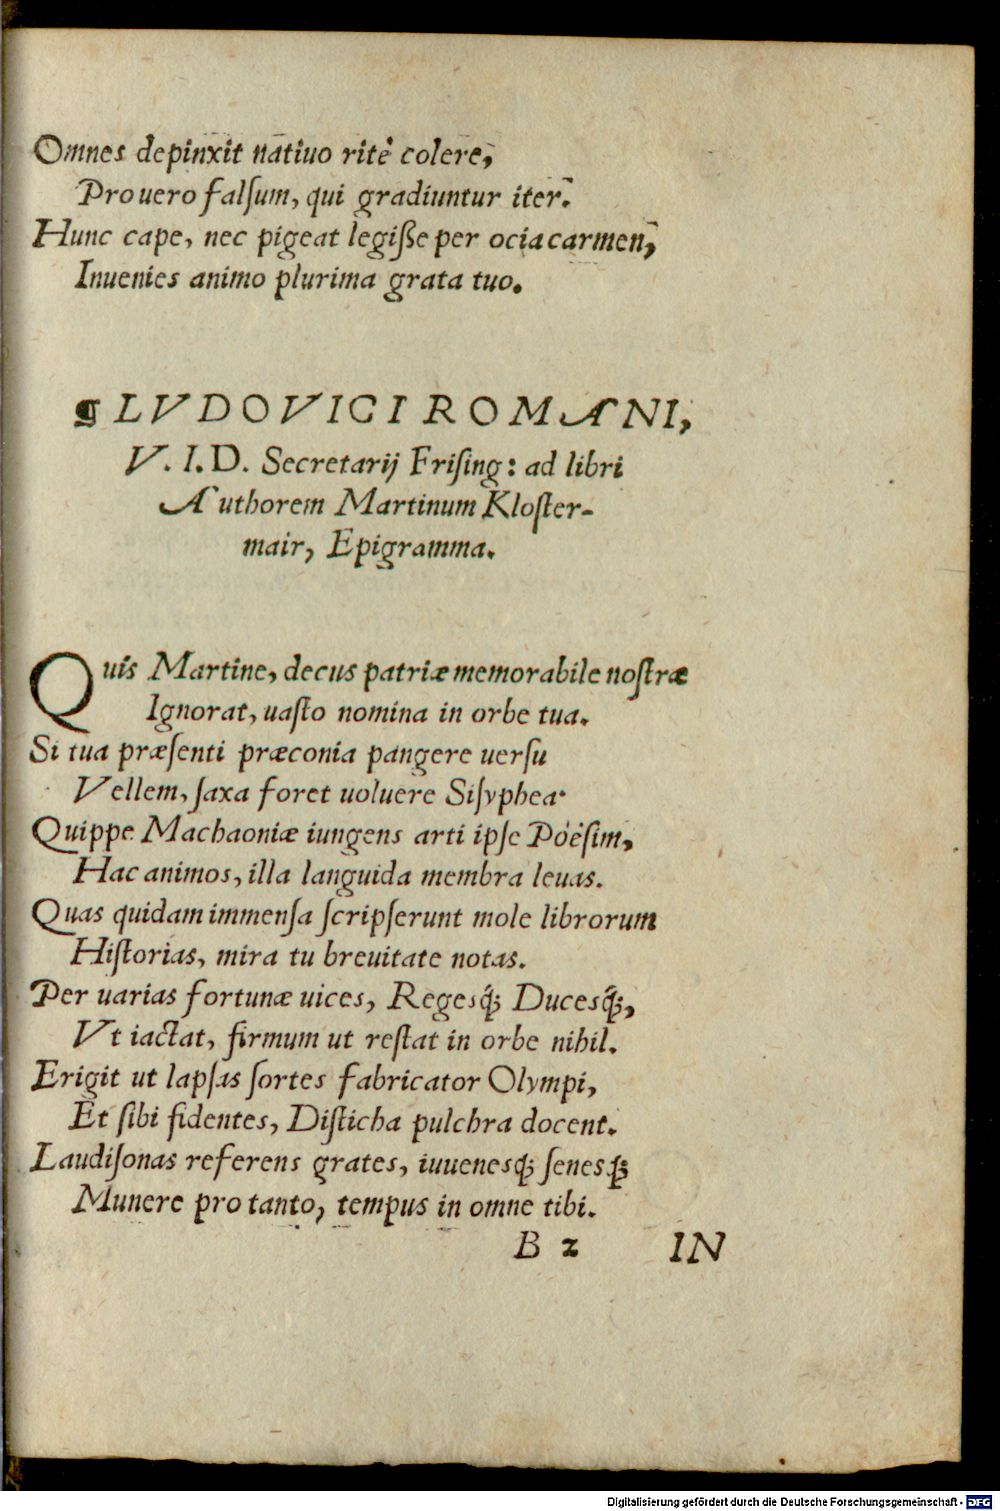 Omnes depinxit natiuo ritè colere,
Pro uero falſum, qui gradiuntur iter.
Hunc cape, nec pigeat legiſſe per ocia carmen,
Inuenies animo plurima grata tuo.
¶ LVDOVICI ROMANI,
V. I. D. Secretarij Friſing: ad libri
Authorem Martinum Kloſter-
mair, Epigramma.
Quis Martine, decus patriæ memorabile noſtræ
Ignorat, uaſto nomina in orbe tua.
Si tua præſenti præconia pangere uerſu
Vellem, ſaxa foret uoluere Siſyphea.
Quippe Machaoniæ iungens arti ipſe Poëſim,
Hac animos, illa languida membra leuas.
Quas quidam immenſa ſcripſerunt mole librorum
Hiſtorias, mira tu breuitate notas.
Per uarias fortunæ uices, Regesq́; Ducesq́;,
Vt iactat, firmum ut reſtat in orbe nihil.
Erigit ut lapſas ſortes fabricator Olympi,
Et ſibi fidentes, Diſticha pulchra docent.
Laudiſonas referens grates, iuuenesq́; ſenesq́;
Munere pro tanto, tempus in omne tibi.
B 2 IN
Digitalisierung gefördert durch die Deutsche Forschungsgemeinschaft - DFG